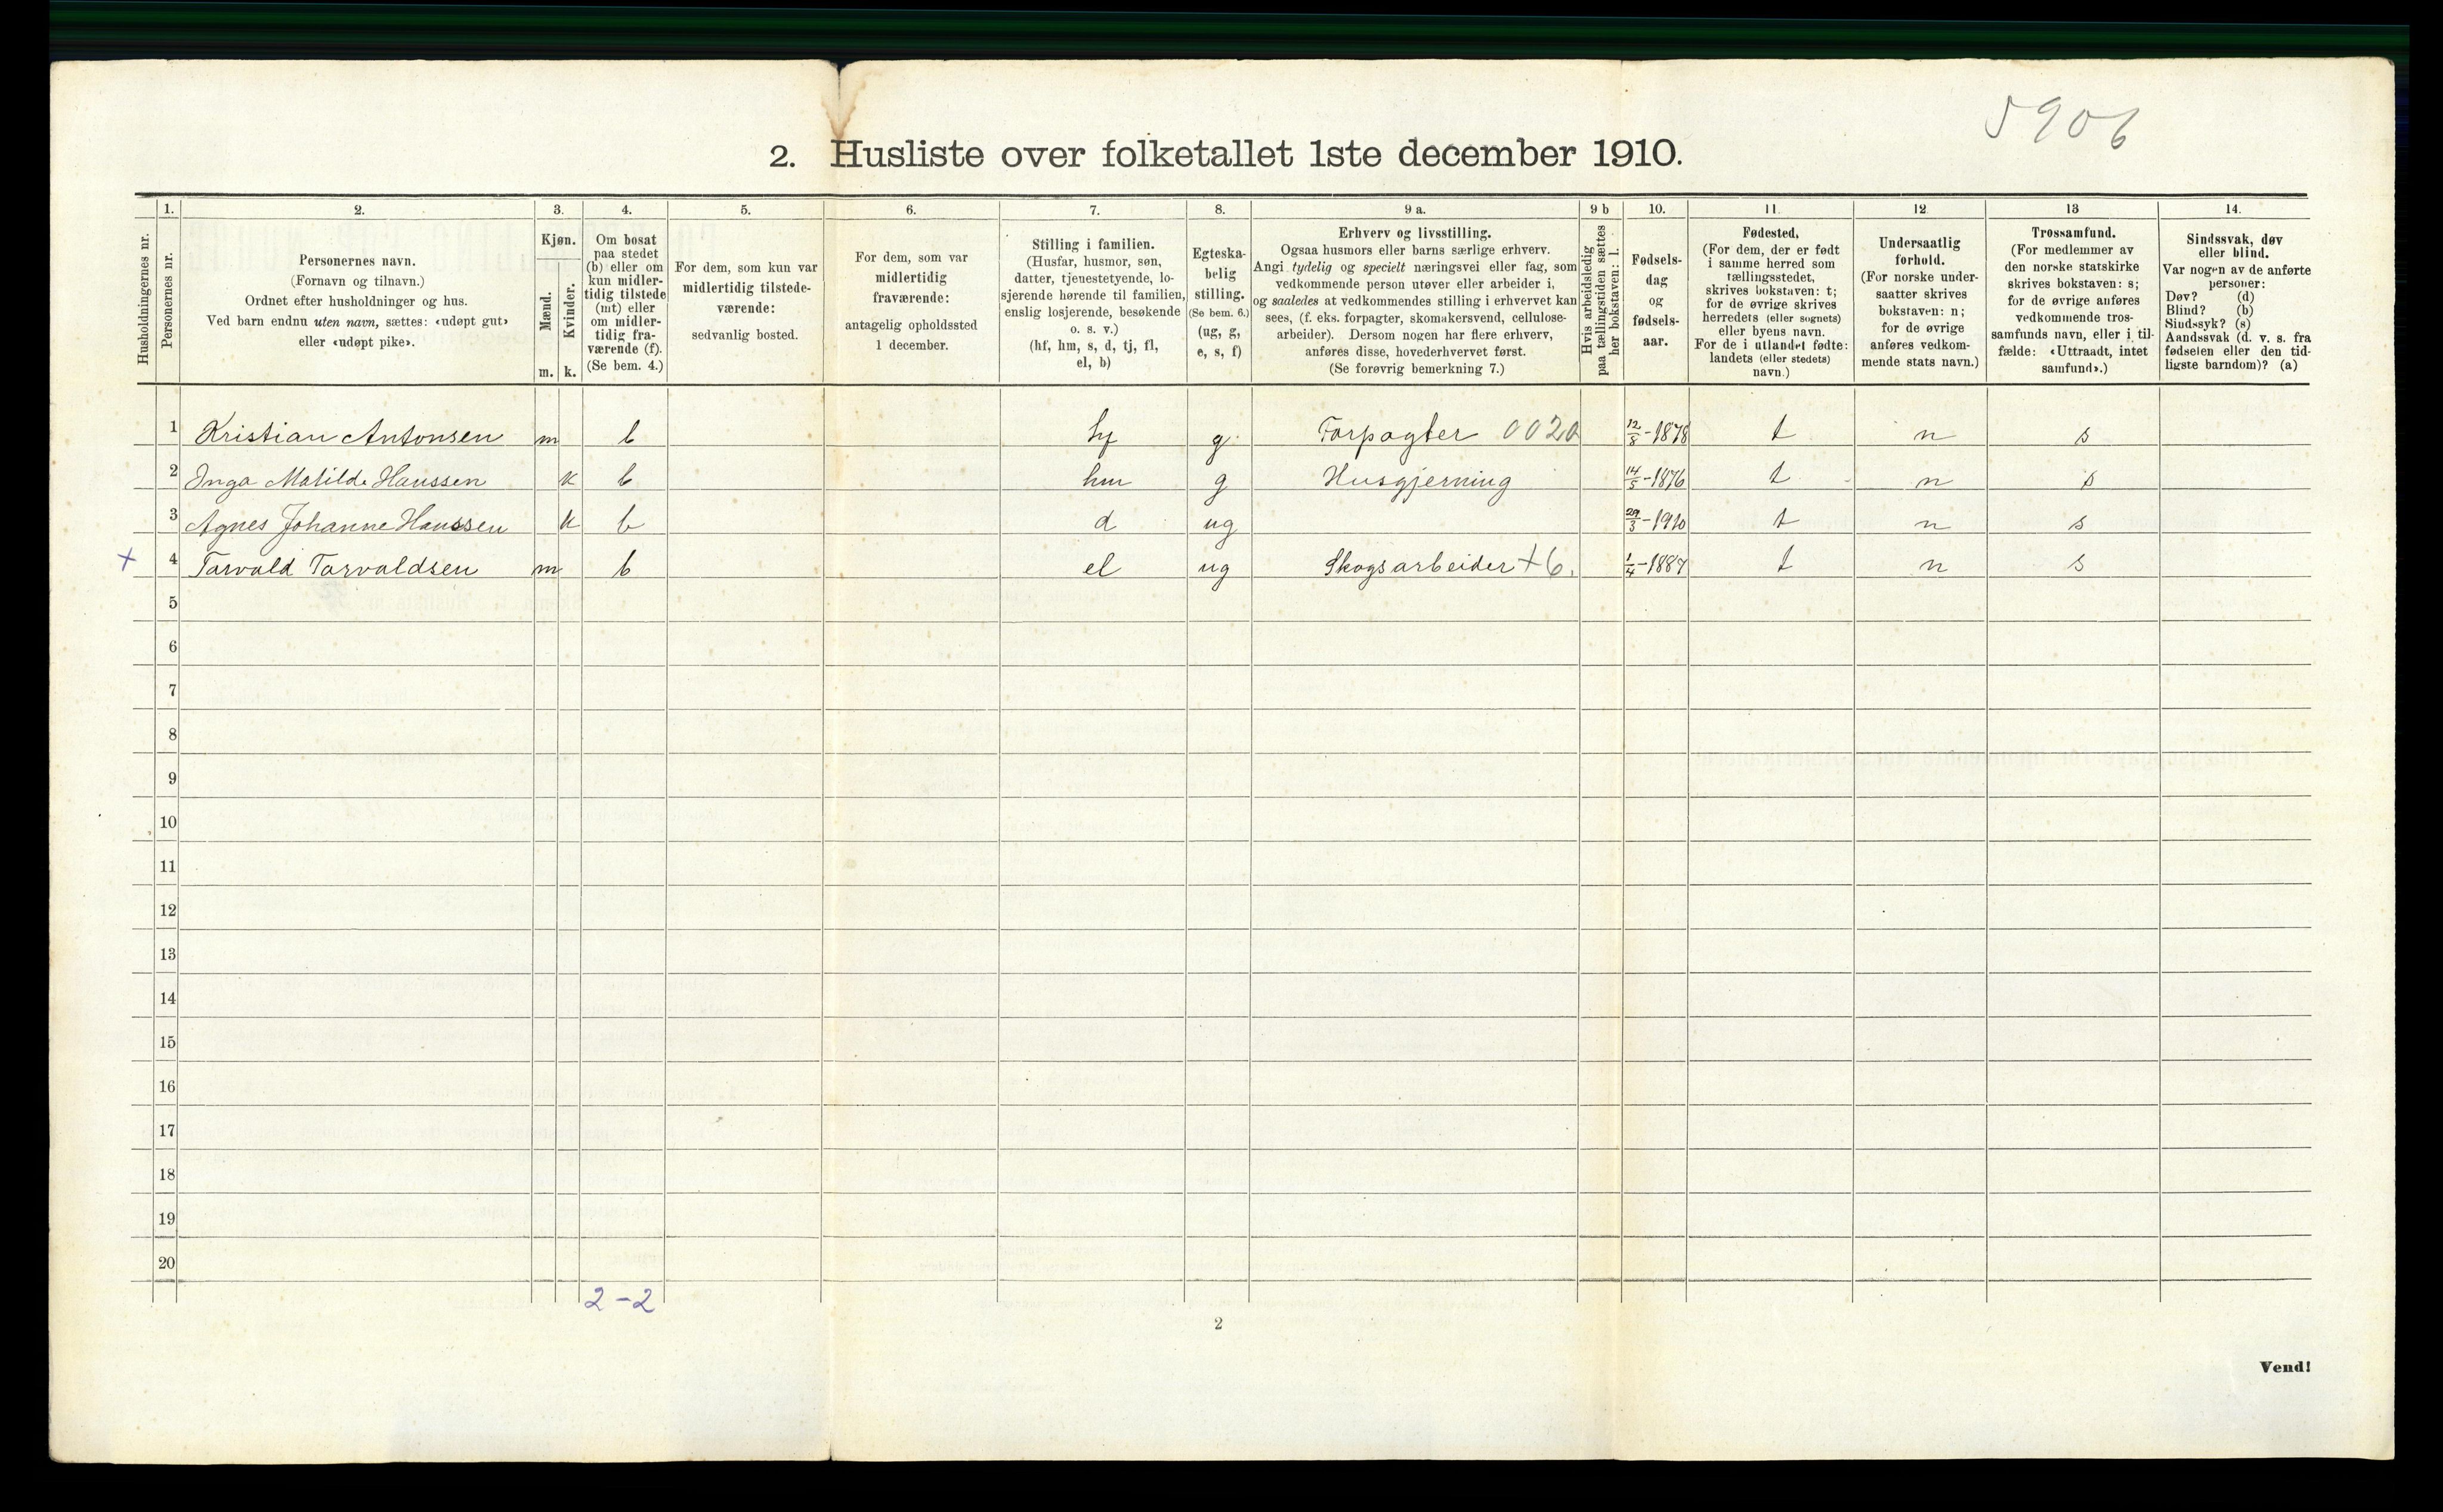 5906
2. Husliste over folketallet 1ste december 1910.
Husholdningernes nr.
1.
Personernes nr.
2.
Personernes navn.
(Fornavn og tilnavn.)
Ordnet efter husholdninger og hus.
Ved barn endnu uten navn, sættes: «udøpt gut»
eller «udøpt pike».
3.
Kjøn.
Mænd.
Kvinder.
m. k.
4.
Om bosat
paa stedet
(b) eller om
kun midler-
tidig tilstede
(mt) eller
om midler-
tidig fra-
værende (f).
(Se bem. 4.)
5.
For dem, som kun var
midlertidig tilstede-
værende:
sedvanlig bosted.
6.
For dem, som var
midlertidig
fraværende:
antagelig opholdssted
1 december.
7.
Stilling i familien.
(Husfar, husmor, søn,
datter, tjenestetyende, lo-
sjerende hørende til familien,
enslig losjerende, besøkende
o. s. v.)
(hf, hm, s, d, tj, fl,
el, b)
8.
Egteska-
belig
stilling.
(Se bem. 6.)
(ug, g,
e, s, f)
9 a.
Erhverv og livsstilling.
Ogsaa husmors eller barns særlige erhverv.
Angi tydelig og specielt næringsvei eller fag, som
vedkommende person utøver eller arbeider i,
og saaledes at vedkommendes stilling i erhvervet kan
sees, (f. eks. forpagter, skomakersvend, cellulose-
arbeider). Dersom nogen har flere erhverv,
anføres disse, hovederhvervet først.
(Se forøvrig bemerkning 7.)
9 b
Hvis arbeidsledig
paa tællingstiden sættes
her bokstaven: l.
10.
Fødsels-
dag
og
fødsels-
aar.
11.
Fødested.
(For dem, der er født
i samme herred som
tællingsstedet,
skrives bokstaven: t;
for de øvrige skrives
herredets (eller sognets)
eller byens navn.
For de i utlandet fødte:
landets (eller stedets)
navn.)
12.
Undersaatlig
forhold.
(For norske under-
saatter skrives
bokstaven: n;
for de øvrige
anføres vedkom-
mende stats navn.)
13
Trossamfund.
(For medlemmer av
den norske statskirke
skrives bokstaven: s;
for de øvrige anføres
vedkommende tros-
samfunds navn, eller i til-
fælde: «Uttraadt, intet
samfund».)
14.
Sindssvak, døv
eller blind.
Var nogen av de anførte
personer:
Døv? (d)
Blind? (b)
Sindssyk? (s)
Aandssvak (d. v. s. fra
fødselen eller den tid-
ligste barndom)? (a)
1 Kristian Antonsen m b hf g Forpagter 0020 12/8-1878 t n s
2 Inga Matilde Hanssen k b hm g Husgjerning 14/5-1876 t n s
3 Agnes Johanne Hanssen k b d ug 29/3-1910 t n s
+ 4 Torvald Torvaldsen m b el ug Skogsarbeider +6. 1/4-1887 t n s
5
6
7
8
9
10
11
12
13
14
15
16
17
18
19
20
2-2
2
Vend!